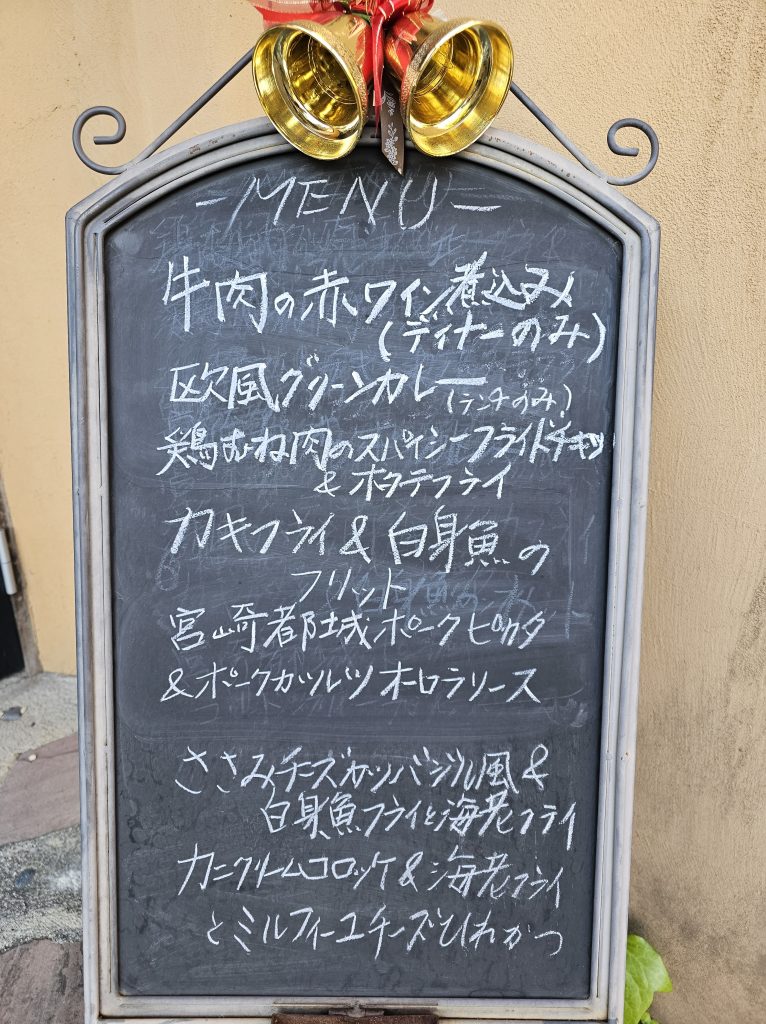 -MENU-
牛肉の赤ワイン煮込み
(ディナーのみ)
欧風グリーンカレー(ランチのみ)
鶏むね肉のスパイシーフライドチキン
&ホタテフライ
カキフライ&白身魚の
フリット
宮崎都城ポークピカタ
&ポークカツレツ オーロラソース
ささみチーズカツバジル風&
白身魚フライと海老フライ
カニクリームコロッケ&海老フライ
とミルフィーユチーズひれかつ